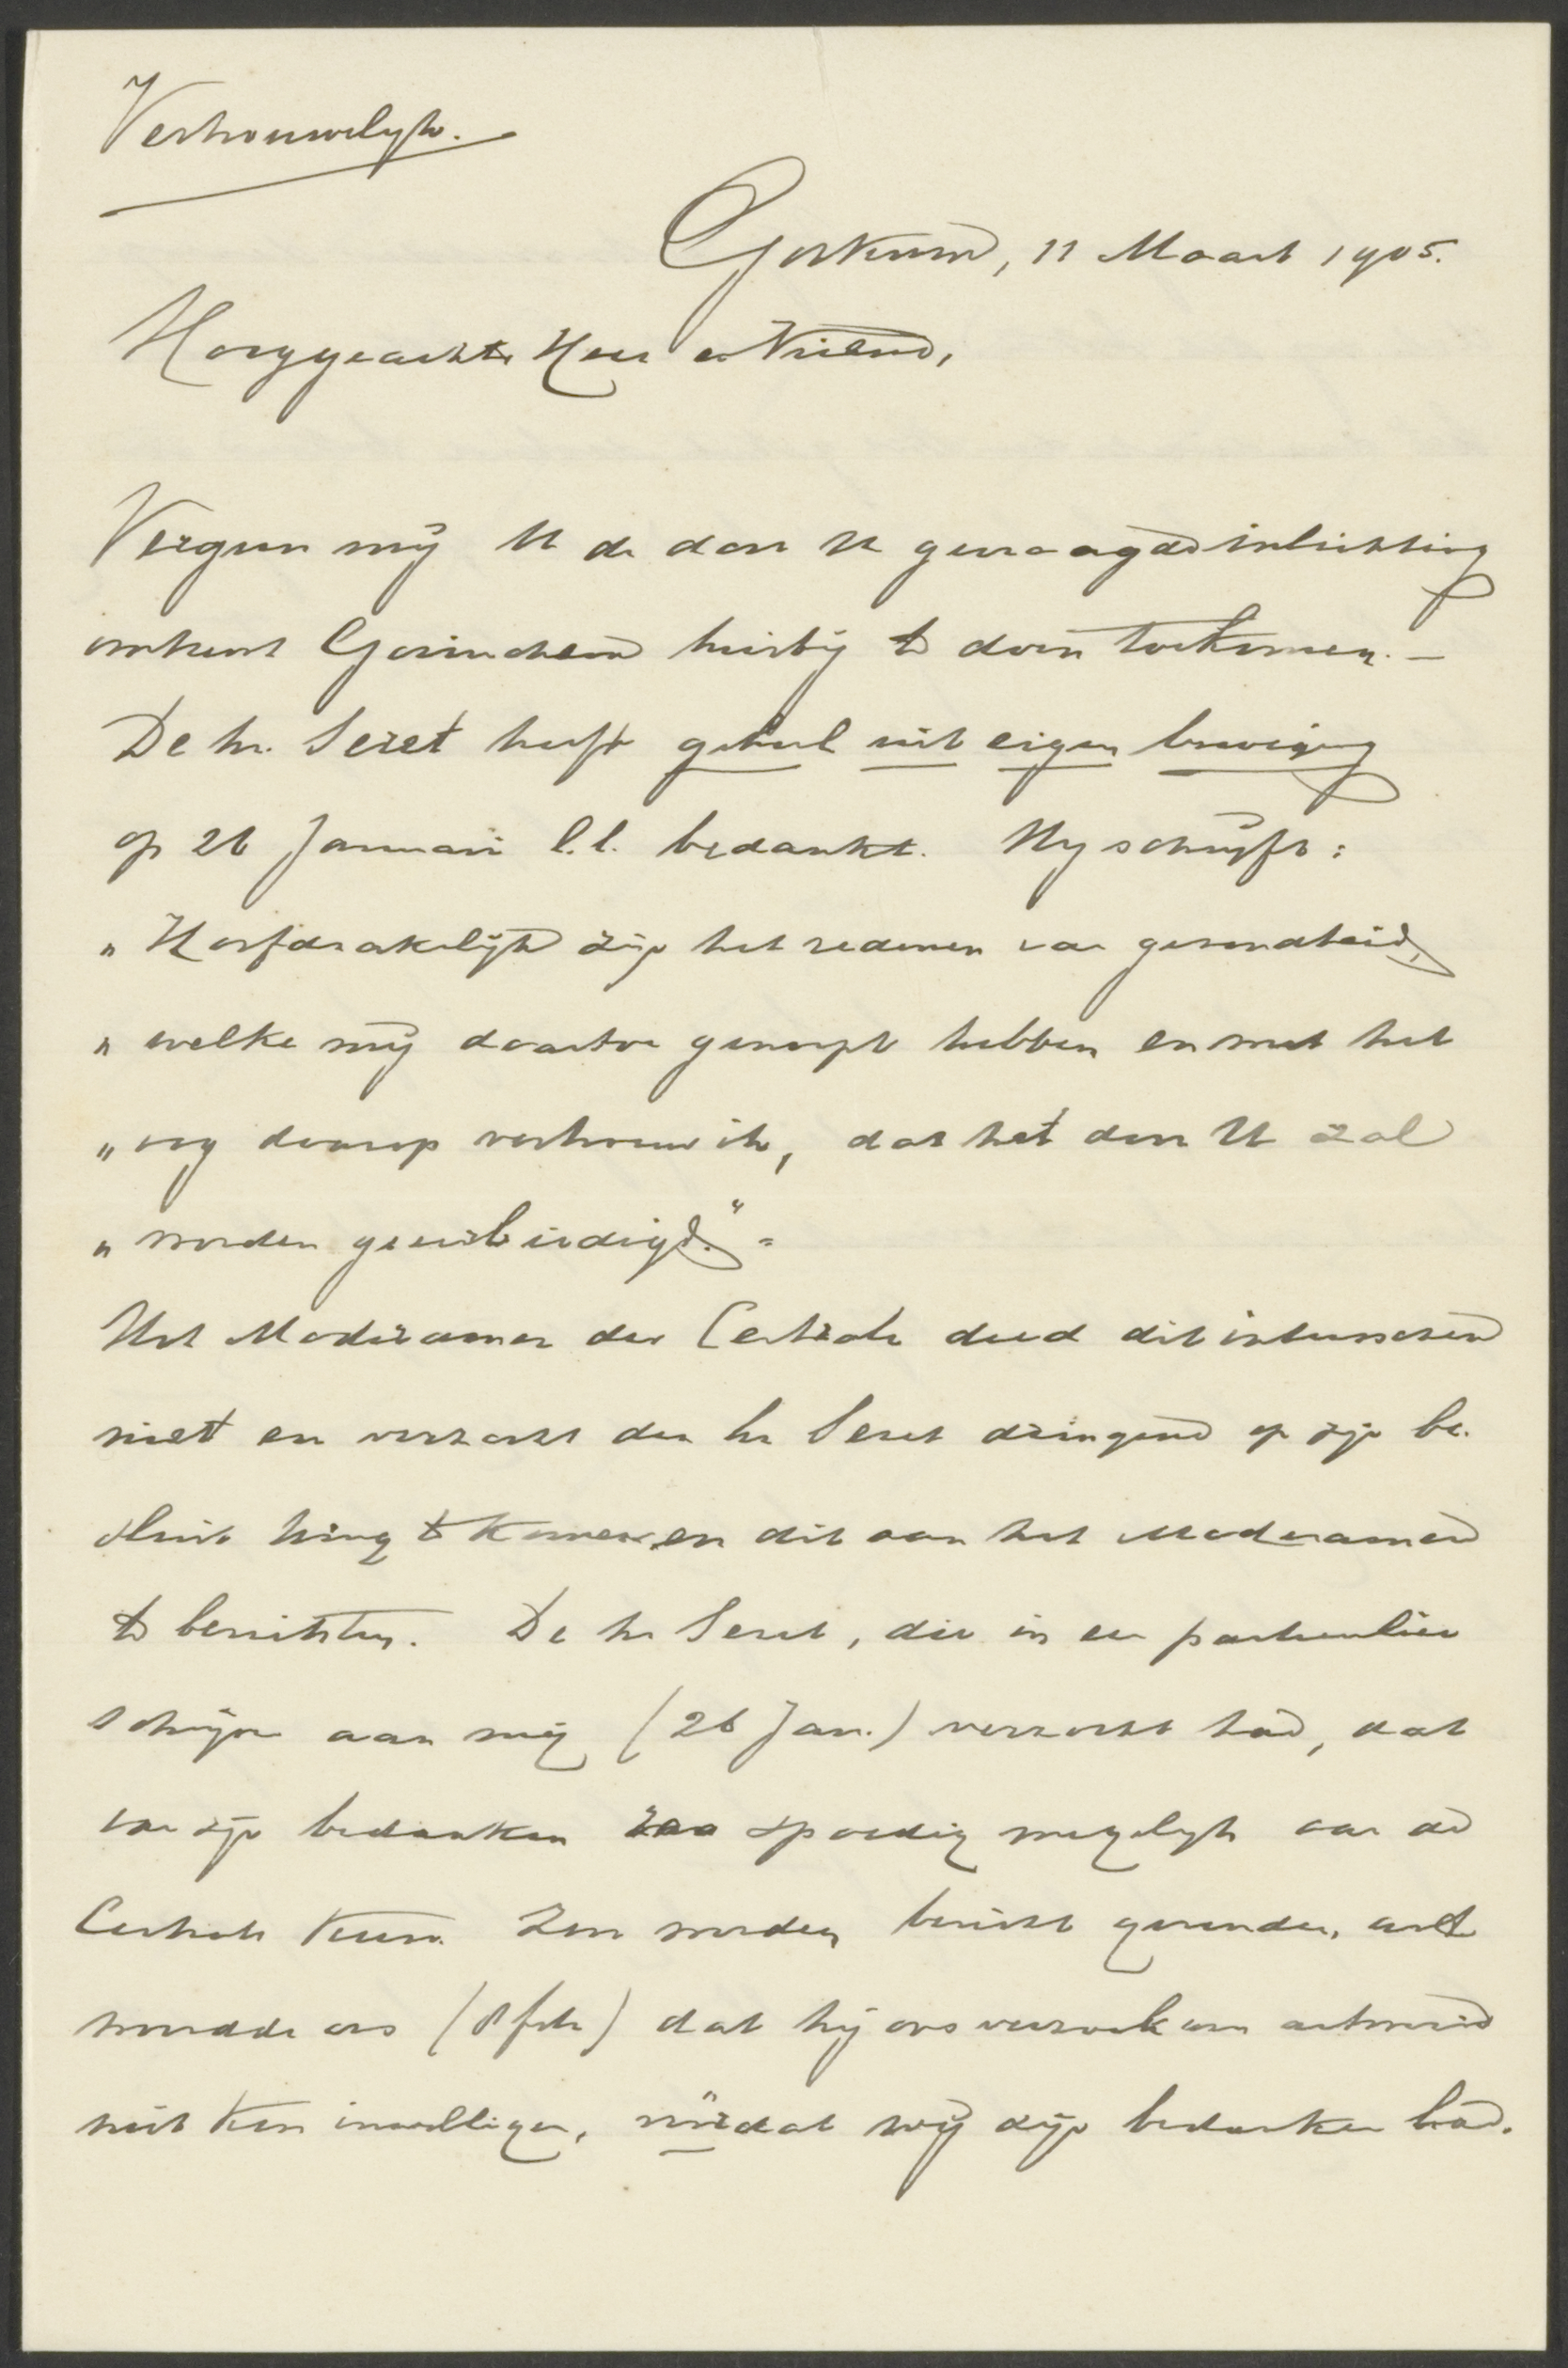 Vertrouwelijk.
Gorkum, 11 Maart 1905.
Hooggeachte Heer en Vriend,
Vergun mij U de door U gevraagde inlichting
omtrent Gorinchem hierbij te doen toekomen. —
De hr. Seret heeft geheel uit eigen beweging
op 26 Januari l.l. bedankt. Hij schrijft:
„Hoofdzakelijk zijn het redenen van gezondheid,
„welke mij daartoe genoopt hebben en met het
„oog daarop vertrouw ik, dat het door U zal
„worden geeerbiedigd." =
Het Moderamen der Centrale deed dit intusschen
niet en verzocht den hr Seret dringend op zijn be-
sluit terug te komen en dit aan het Moderamen
te berichten. De hr Seret, die in een particulier
schrijven aan mij (26 Jan.) verzocht had, dat
van zijn bedanken zoo spoedig mogelijk aan de
Centrale Kiesv. zou worden bericht gezonden, ant
woordde ons (8 febr) dat hij ons verzoek om
niet kon inwilligen, nòdat wij zijn bedanken had.